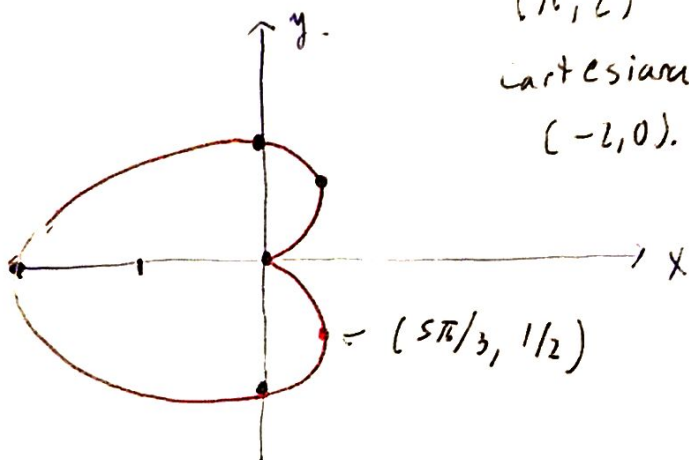 y.
(π, 2)
cartesiana
(-2, 0).
x
(5π/3, 1/2)